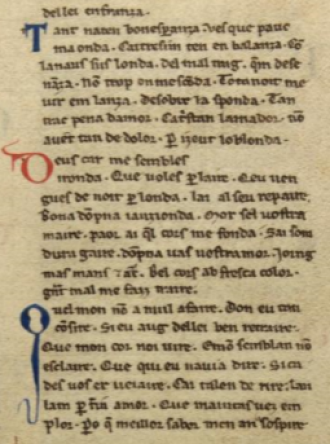 del lei en franza.
Tant naten bonesperanza. ves que pauc
ma onda. Catresim ten en balanza. Cō
la naus sus londa. del mal qm dese
nāza. Nō trop on mescōda. Tota noit me
vir em lanza. desobre la sponda. Tan
trac pena damor. lamador. nō
tan de dolor. p la blonda.
Deus car me sembles
ironda. Que voles p laire. Qeu ven
gues de noit p londa. lai al seu repaire.
Bona dōpna iauzionda. Mor sel vostra
maire. paor ai ql cors me fonda. Sai som
dura gaire. dōpna vas vostramor. Joing
mas mans ⁊ ar. Bel cors ab fresca color.
gnt mal me faiz traire.
Quel mon nō a nuil afaire. Don eu tan
cōsire. Si eu aug dellei ben retraire.
Que mon cor noi vire. Emō semblan nō
esclaire. Que qui eu navia dire. Si ca
des vos er veiaire. Cai talen de rire. lan
lam p fin amor. Que maintas vez em
plor. Po q meillor sabor men an sospire